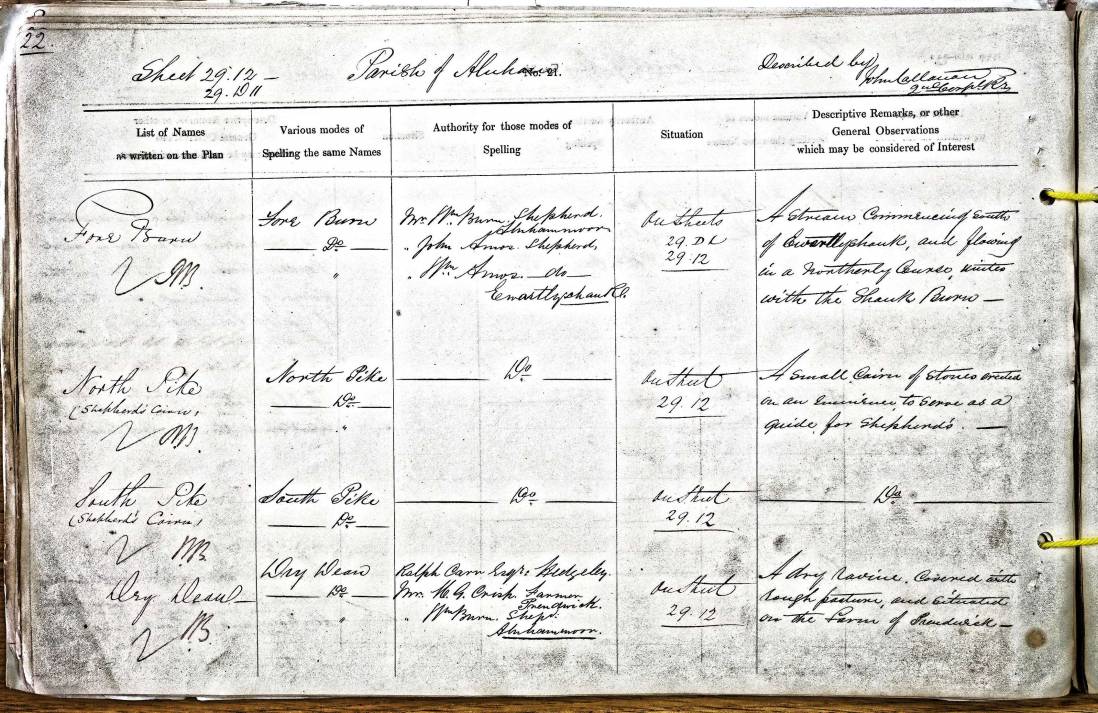 22
Sheet 29.12 —
29.D11
Parish of Alnham
No. 21.
Described by
John Callanan
2nd Corpl R.E.
List of Names
as written on the Plan
Various modes of
Spelling the same Names
Authority for those modes of
Spelling
Situation
Descriptive Remarks, or other
General Observations
which may be considered of Interest
Fore Burn
Fore Burn
Do
"
Mr. Wm Burn. Shepherd.
Alnhammoor
" John Amos. Shepherd,
" Wm Amos. —do—
Ewartlyshank
On Sheets
29.D
29.12
A Stream Commencing South
of Ewartlyshank, and flowing
in a Northerly Course, unites
with the Shank Burn —
North Pike
(Shepherd's Cairn)
North Pike
Do
"
Do
On Sheet
29.12
A Small Cairn of Stones erected
on an eminence to serve as a
guide for Shepherd's. —
South Pike
(Shepherd's Cairn)
South Pike
Do
Do
On Sheet
29.12
Do
Dry Dean
Dry Dean
Do
"
Ralph Carr Esqr. Hedgeley.
Mr. H.G. Crisp Farmer
Prendwick.
" Wm Burn. Shepd.
Alnhammoor.
On Sheet
29.12
A dry ravine. Covered with
rough pasture, and Situated
on the Farm of Prendwick —